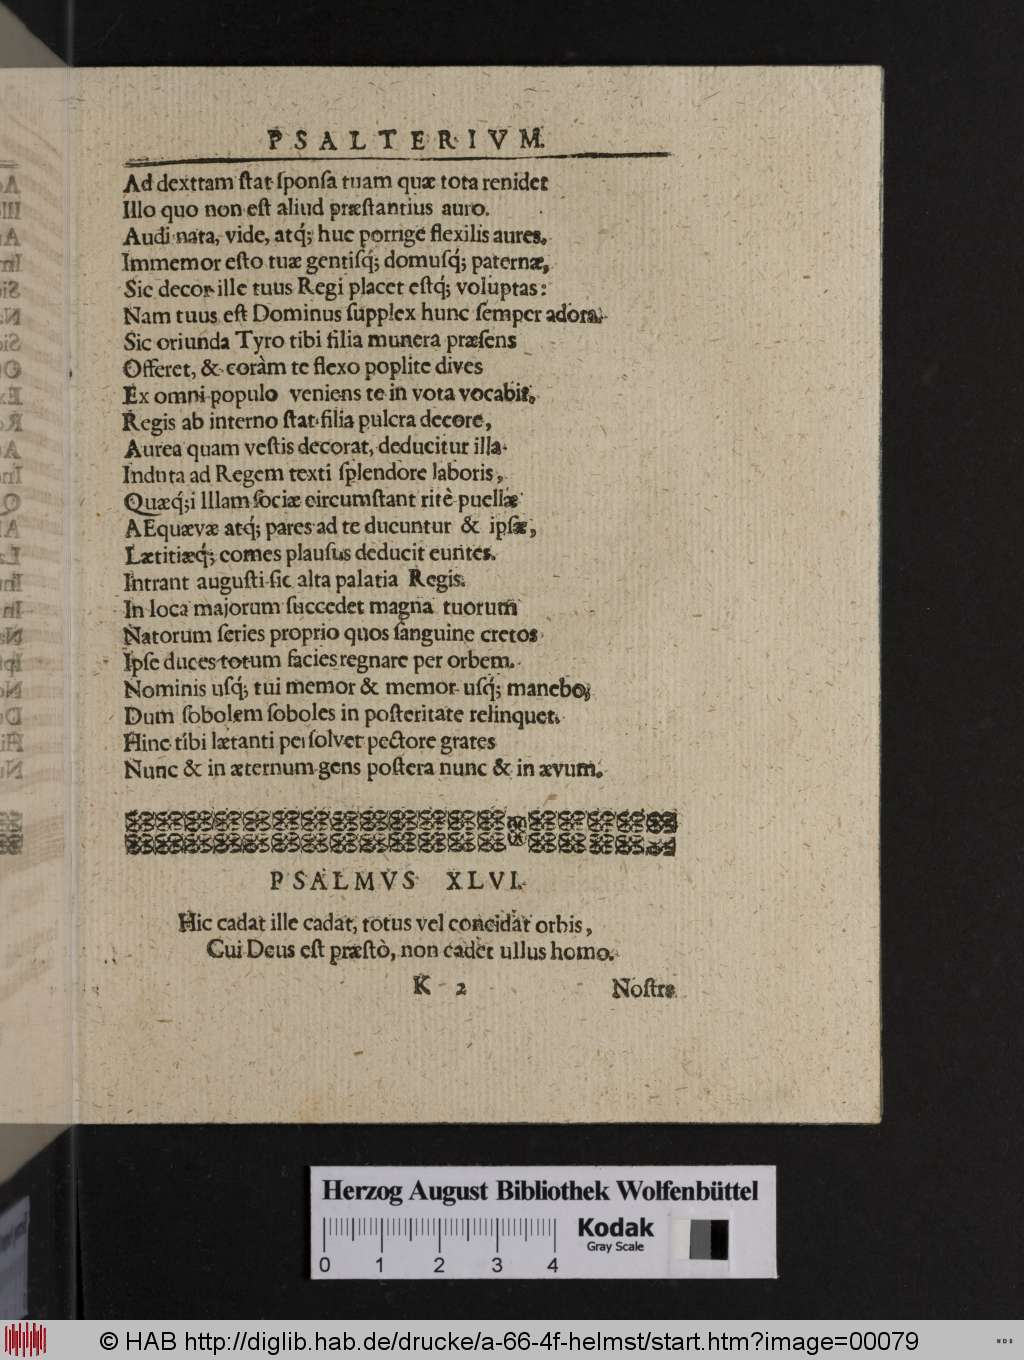 PSALTERIVM.
Ad dextram ſtat ſponſa tuam quæ tota renidet
Illo quo non eſt aliud præſtantius auro.
Audi nata, vide, atq́; huc porrige flexilis aures,
Immemor eſto tuæ gentiſq́; domuſq́; paternæ,
Sic decor ille tuus Regi placet eſtq́; voluptas:
Nam tuus eſt Dominus ſupplex hunc ſemper adora.
Sic oriunda Tyro tibi filia munera præſens
Offeret, & coràm te flexo poplite dives
Ex omni populo veniens te in vota vocabit.
Regis ab interno ſtat filia pulcra decore,
Aurea quam veſtis decorat, deducitur illa
Induta ad Regem texti ſplendore laboris,
Quæq́;i lllam ſociæ circumſtant ritè puellæ
AEquævæ atq́; pares ad te ducuntur & ipſæ,
Lætitiæq́; comes plauſus deducit euntes.
Intrant auguſti ſic alta palatia Regis.
In loca majorum ſuccedet magna tuorum
Natorum ſeries proprio quos ſanguine cretos
Ipſe duces totum facies regnare per orbem.
Nominis uſq́; tui memor & memor uſq́; manebo,
Dum ſobolem ſoboles in poſteritate relinquet.
Hinc tibi lætanti perſolvet pectore grates
Nunc & in æternum gens poſtera nunc & in ævum.
PSALMVS XLVI.
Hic cadat ille cadat, totus vel concidat orbis,
Cui Deus eſt præſtò, non cadet ullus homo.
K 2 Noſtra
Herzog August Bibliothek Wolfenbüttel
Kodak
Gray Scale
0 1 2 3 4
© HAB http://diglib.hab.de/drucke/a-66-4f-helmst/start.htm?image=00079